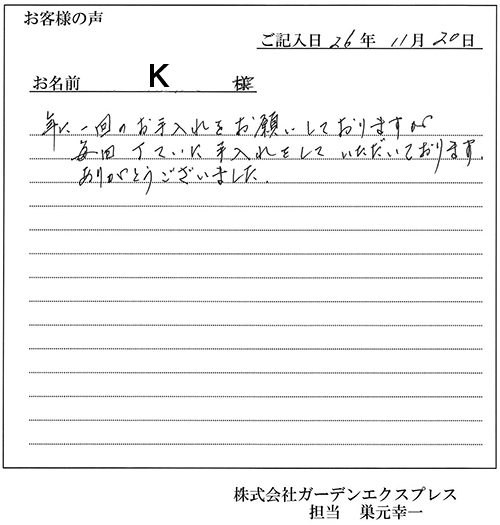 お客様の声
ご記入日 26年 11月 20日
お名前 K 様
年に一回のお手入れをお願いしておりますが
毎回ていねいに手入れをしていただいております。
ありがとうございました。
株式会社ガーデンエクスプレス
担当 巣元幸一